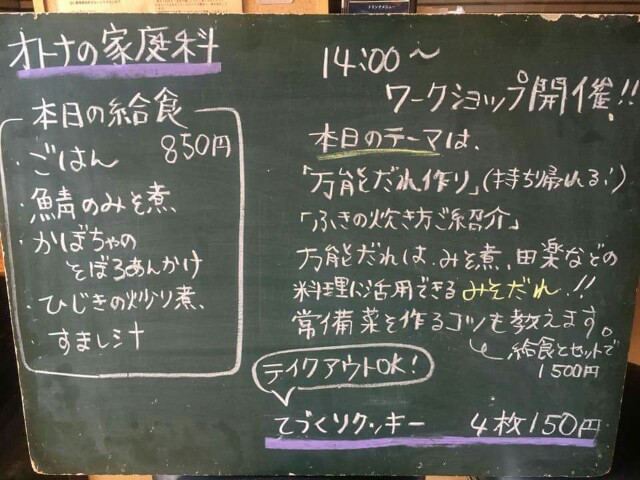 オトナの家庭科
本日の給食
850円
・ごはん
・鯖のみそ煮
・かぼちゃの
そぼろあんかけ
・ひじきの炒り煮
・すまし汁
14:00〜
ワークショップ開催!!
本日のテーマは、
「万能だれ作り」(持ち帰れる!)
「ふきの炊き方ご紹介」
万能だれは、みそ煮、田楽などの
料理に活用できるみそだれ!!
常備菜を作るコツを教えます。
給食とセットで
1500円
テイクアウトOK!
てづくりクッキー 4枚150円